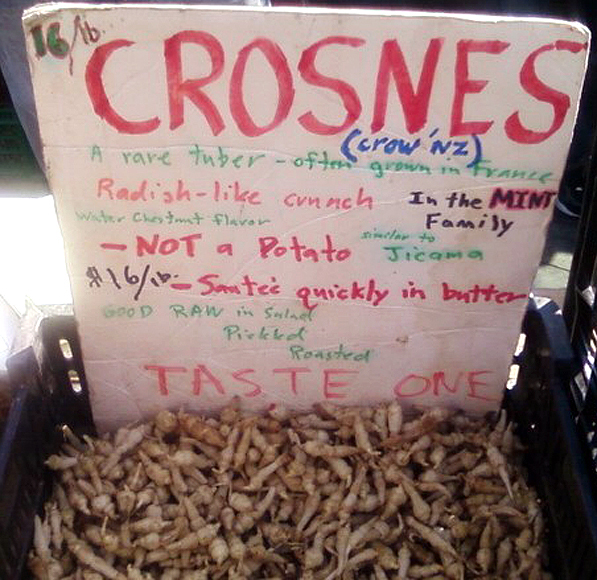 16/lb.
CROSNES
(crow'nz)
A rare tuber - often grown in France
Radish-like crunch In the MINT
Water Chestnut flavor Family
- NOT a Potato similar to Jicama
$16/lb. - Sauteé quickly in butter
GOOD RAW in Salad
Pickled
Roasted
TASTE ONE